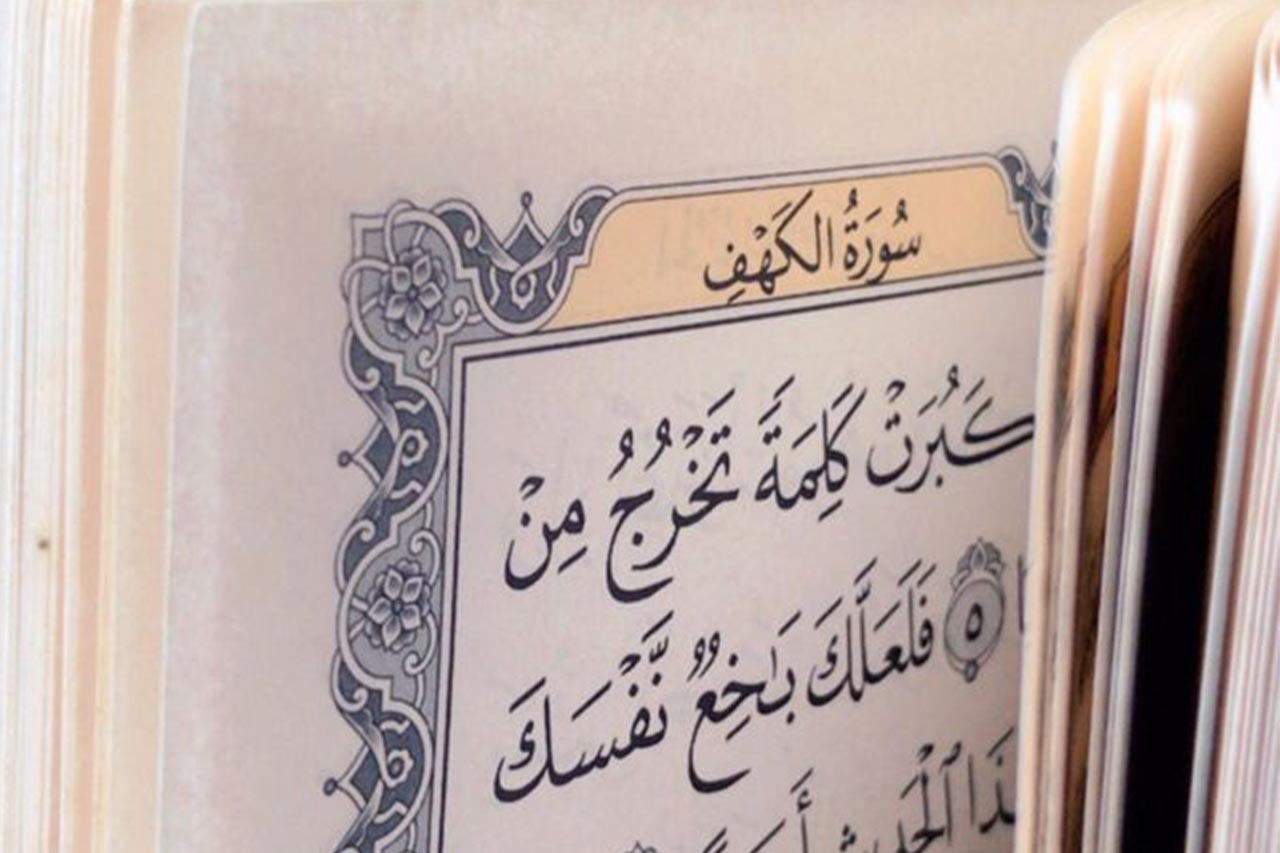 سُورَةُ الكَهْفِ
كَبُرَتْ كَلِمَةً تَخْرُجُ مِنْ
٥ فَلَعَلَّكَ بَاخِعٌ نَّفْسَكَ
الْحَدِيثِ